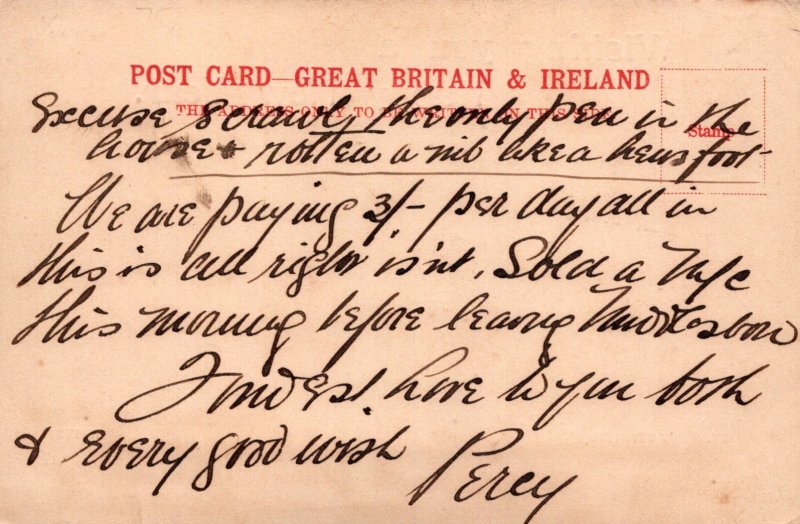 POST CARD—GREAT BRITAIN & IRELAND
THE ADDRESS ONLY TO BE WRITTEN ON THIS SIDE
Stamp
Excuse scrawly the only pen in the
house & rotten a nib like a hens foot
We are paying 3/- per day all in
this is all right isn't. Sold a
this morning before leaving Middlesboro
Fondest love to you both
& every good wish
Percy